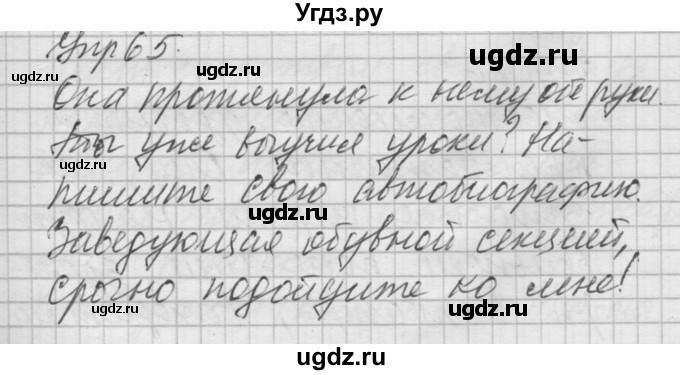 Угдз.ру
Упр 65.
Она протянула к нему обе руки.
Ты уже выучил уроки? На-
пишите свою автобиографию.
Заведующая обувной секцией,
срочно подойдите ко мне!
ugdz.ru
ugdz.ru
ugdz.ru
ugdz.ru
ugdz.ru
ugdz.ru
ugdz.ru
ugdz.ru